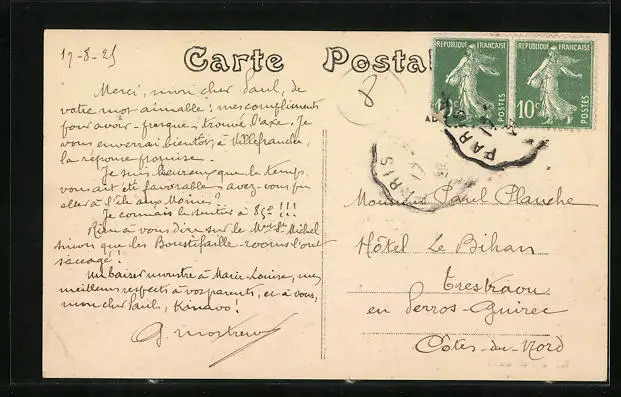 17-8-25
Carte Postale
Merci, mon cher Paul, de
votre mot aimable ; mes compliments
pour avoir - presque - trouvé l'axe. Je
vous enverrai bientôt, à Villefranche,
la réponse promise.
Je suis heureux que le temps
vous ait été favorable ; avez-vous pu
aller à l'île aux Moines ?
Je connais le sentier à 85° !!!
Rien à vous dire sur le Mont St Michel
sinon que les
saccagé !
Un baiser monstre à Marie-Louise, mes
meilleurs respects à vos parents, et à vous,
mon cher Paul, Kénavo !
G.
8
REPUBLIQUE FRANÇAISE
10c
POSTES
REPUBLIQUE FRANÇAISE
10c
POSTES
PARIS
PARIS
Monsieur Paul Planche
Hôtel Le Bihan
Trestraou
en Perros-Guirec
Côtes-du-Nord